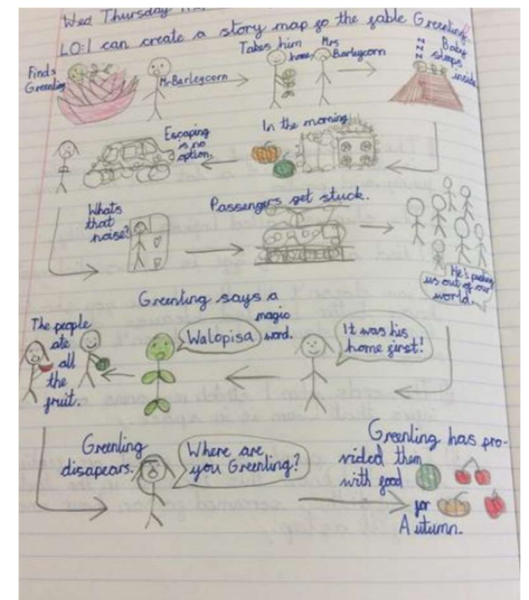 Wed Thursday
LO: I can create a story map go the fable Greenling
Finds
Greenling
Mr Barleycorn
Takes him
home
Mrs
Barleycorn
z z z
Baby
sleeps
inside
In the morning
Escaping
is no
option.
Whats
that
noise?
Passengers get stuck.
He's pushing
us out of our
world.
It was his
home first!
Greenling says a
magic
word.
Walopisa
The people
ate
all
the
fruit.
Greenling
disapears.
Where are
you Greenling?
Greenling has pro-
vided them
with food
for
Autumn.